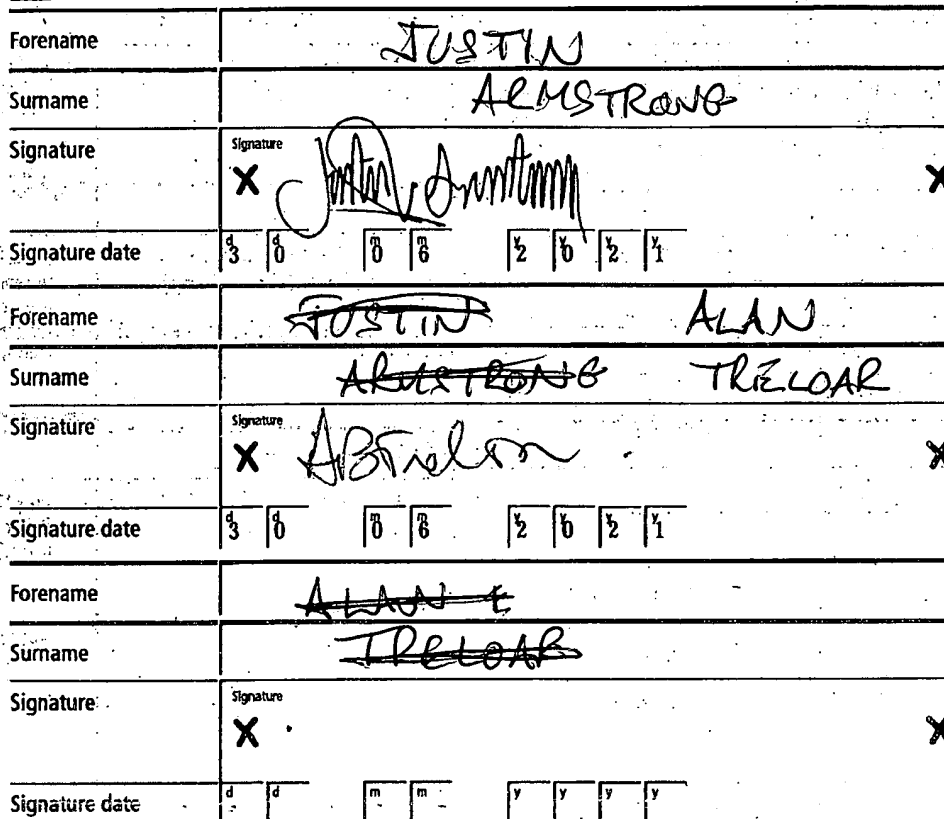 Forename JUSTIN
Surname ARMSTRONG
Signature Signature X X
Signature date d3 d0 m0 m6 y2 y0 y2 y1
Forename JUSTIN ALAN
Surname ARMSTRONG TRELOAR
Signature Signature X X
Signature date d3 d0 m0 m6 y2 y0 y2 y1
Forename ALAN
Surname TRELOAR
Signature Signature X X
Signature date d d m m y y y y